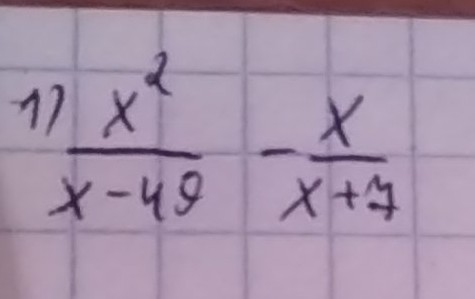 1) x²/(x-49) - x/(x+7)